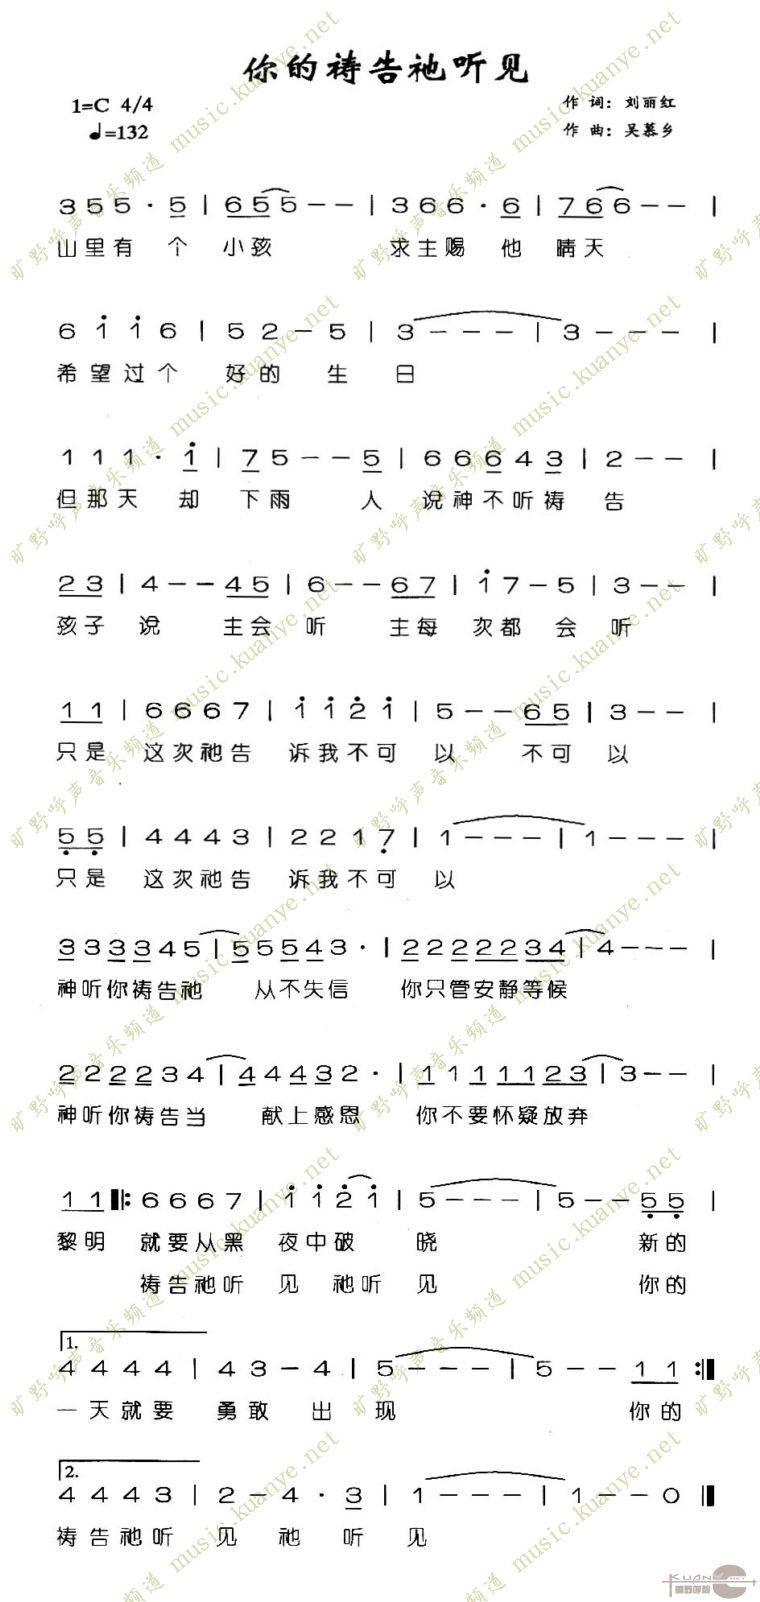 你的祷告祂听见
1=C 4/4
作 词：刘丽红
♩=132
作 曲：吴慕乡
3 5 5 · 5 | 6 5 5 - - | 3 6 6 · 6 | 7 6 6 - - |
山里有 个 小孩 求主赐 他 晴天
6 i i 6 | 5 2 - 5 | 3 - - - | 3 - - - |
希望过个 好的 生 日
1 1 1 · i | 7 5 - - 5 | 6 6 6 4 3 | 2 - - |
但那天 却 下雨 人 说神不听祷 告
2 3 | 4 - - 4 5 | 6 - - 6 7 | i 7 - 5 | 3 - - |
孩子 说 主会 听 主每 次都 会 听
1 1 | 6 6 6 7 | i i 2 i | 5 - - 6 5 | 3 - - |
只是 这次祂告 诉我不可 以 不可 以
5 5 | 4 4 4 3 | 2 2 1 7 | 1 - - - | 1 - - - |
只是 这次祂告 诉我不可 以
3 3 3 3 4 5 | 5 5 5 4 3 · | 2 2 2 2 2 3 4 | 4 - - - |
神听你祷告祂 从不失信 你只管安静等候
2 2 2 2 3 4 | 4 4 4 3 2 · | 1 1 1 1 1 2 3 | 3 - - |
神听你祷告当 献上感恩 你不要怀疑放弃
1 1 ‖: 6 6 6 7 | i i 2 i | 5 - - - | 5 - - 5 5 |
黎明 就要从黑 夜中破 晓 新的
祷告祂听 见 祂听 见 你的
1.
4 4 4 4 | 4 3 - 4 | 5 - - - | 5 - - 1 1 :‖
一天就要 勇敢 出 现 你的
2.
4 4 4 3 | 2 - 4 · 3 | 1 - - - | 1 - - 0 ‖
祷告祂听 见 祂 听 见
KUANYE.NET
旷野呼声
旷野呼声音乐频道 music.kuanye.net